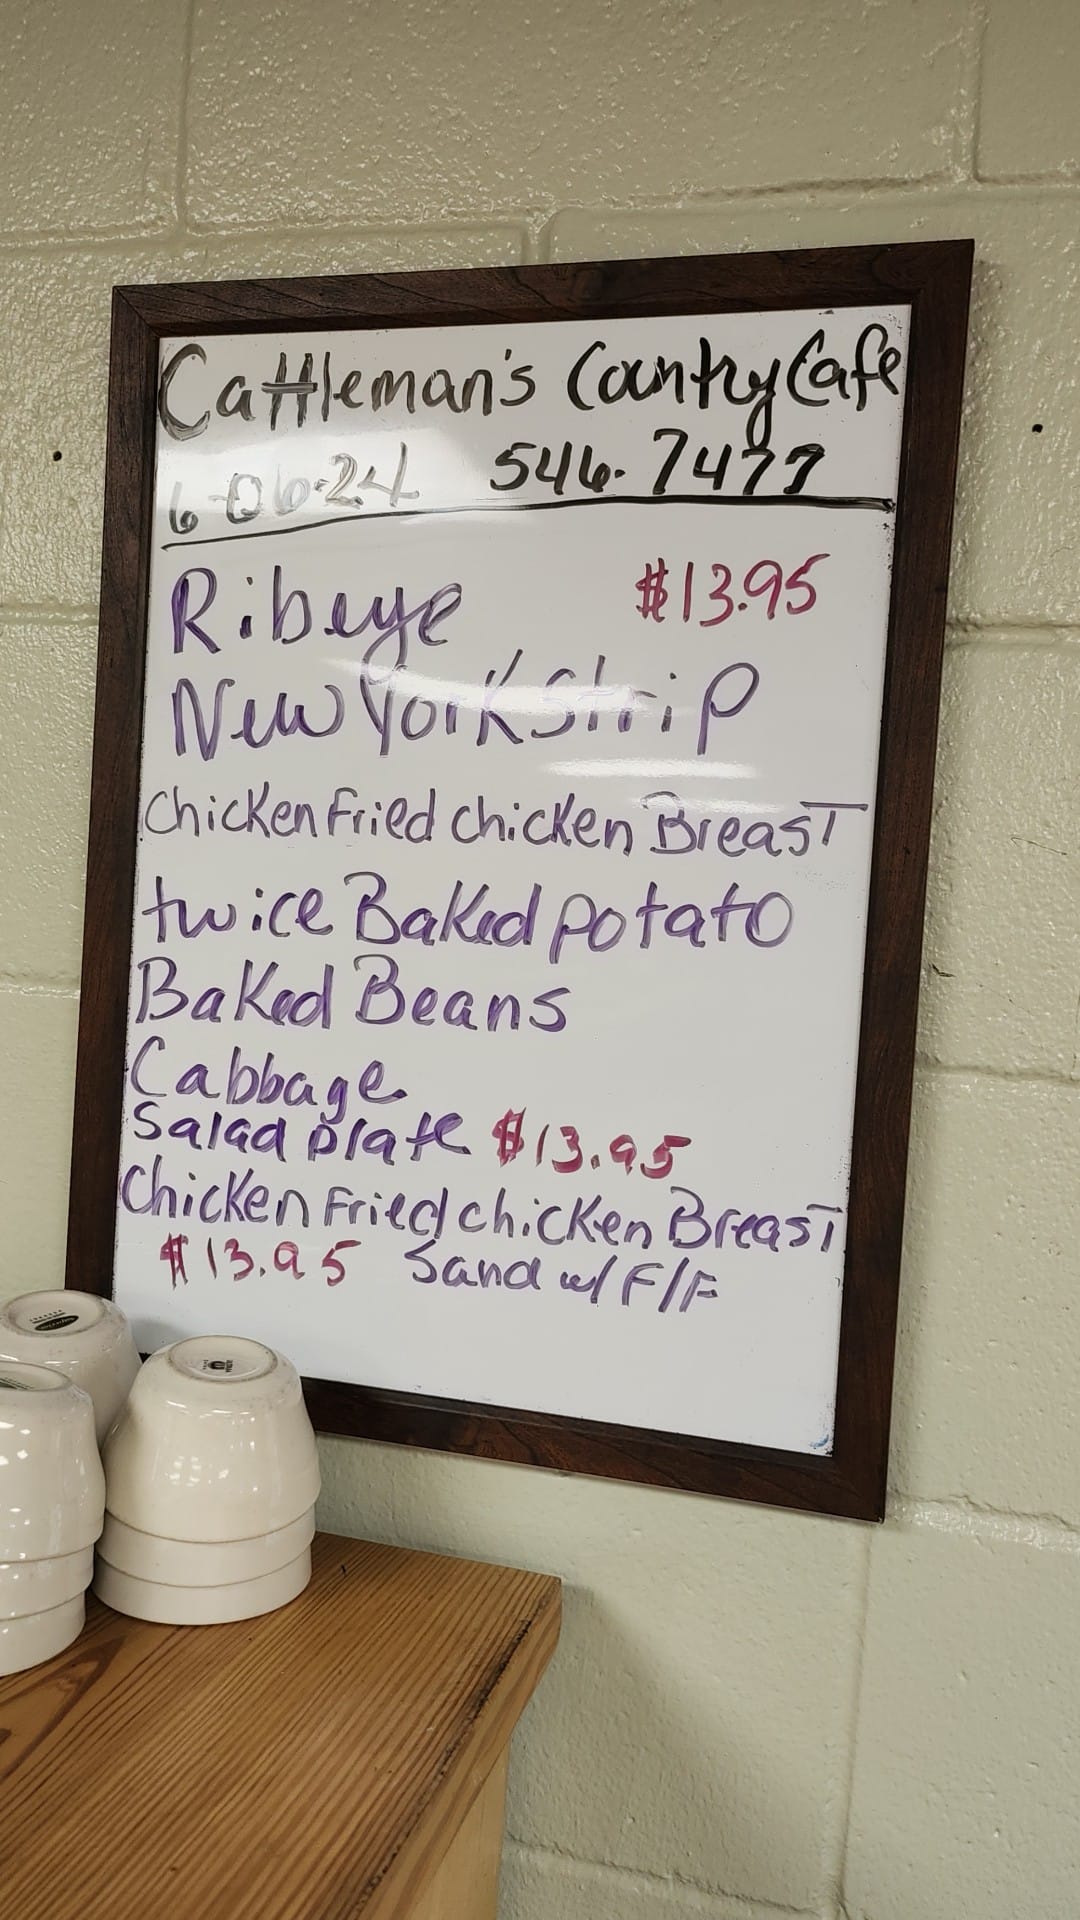 Cattleman's Country Cafe
6-06-24 546-7477
Ribeye $13.95
New York Strip
Chicken Fried chicken BreasT
twice Baked potato
Baked Beans
Cabbage
Salad plate $13.95
Chicken Fried chicken BreasT
$13.95 Sand w/ F/F